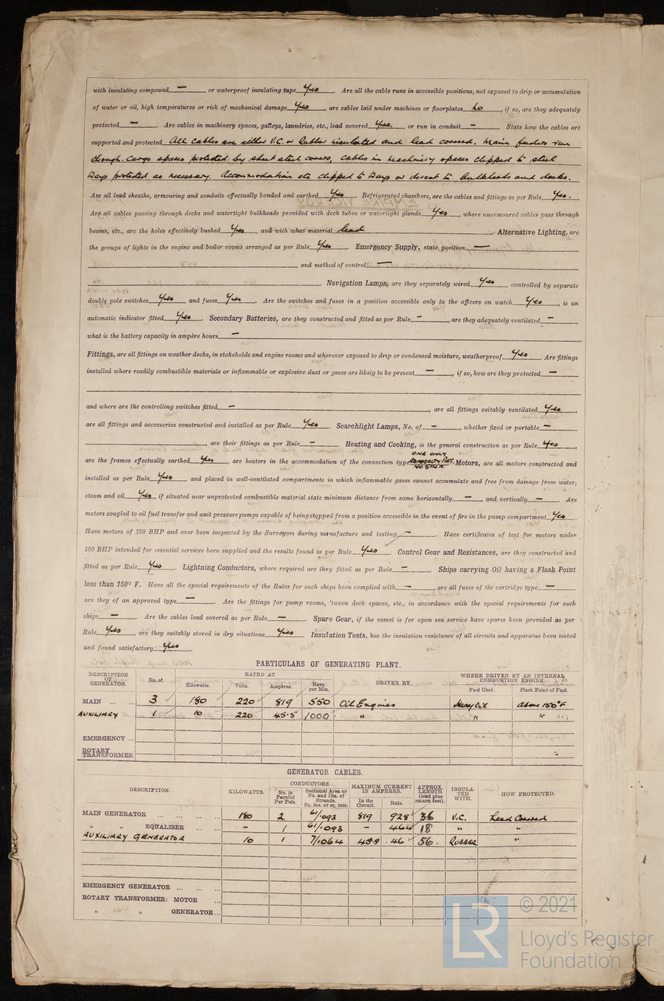 with insulating compound — or waterproof insulating tape Yes Are all the cable runs in accessible positions, not exposed to drip or accumulation
of water or oil, high temperatures or risk of mechanical damage Yes, are cables laid under machines or floorplates No, if so, are they adequately
protected — Are cables in machinery spaces, galleys, laundries, etc., lead covered Yes. or run in conduit — State how the cables are
supported and protected All cables are either V.C. or Rubber insulated and lead covered. Main feeders run
through Cargo spaces protected by sheet steel covers, cables in machinery spaces clipped to steel
trays protected as necessary. Accommodation etc clipped to trays or direct to Bulkheads and decks.
Are all lead sheaths, armouring and conduits effectually bonded and earthed Yes Refrigerated chambers, are the cables and fittings as per Rule Yes.
Are all cables passing through decks and watertight bulkheads provided with deck tubes or watertight glands Yes, where unarmoured cables pass through
beams, etc., are the holes effectively bushed Yes and with what material lead Alternative Lighting, are
the groups of lights in the engine and boiler rooms arranged as per Rule Yes Emergency Supply, state position —
and method of control —
Navigation Lamps, are they separately wired Yes controlled by separate
double pole switches Yes and fuses Yes Are the switches and fuses in a position accessible only to the officers on watch Yes, is an
automatic indicator fitted Yes Secondary Batteries, are they constructed and fitted as per Rule —, are they adequately ventilated —
what is the battery capacity in ampère hours —
Fittings, are all fittings on weather decks, in stokeholds and engine rooms and wherever exposed to drip or condensed moisture, weatherproof Yes Are fittings
installed where readily combustible materials or inflammable or explosive dust or gases are likely to be present —, if so, how are they protected —
and where are the controlling switches fitted — , are all fittings suitably ventilated Yes
are all fittings and accessories constructed and installed as per Rule Yes Searchlight Lamps, No. of —, whether fixed or portable —
, are their fittings as per Rule — Heating and Cooking, is the general construction as per Rule Yes
are the frames effectually earthed Yes, are heaters in the accommodation of the convection type ONE ONLY Motors, are all motors constructed and
installed as per Rule Yes and placed in well-ventilated compartments in which inflammable gases cannot accumulate and free from damage from water,
steam and oil Yes, if situated near unprotected combustible material state minimum distance from same horizontally — and vertically — Are
motors coupled to oil fuel transfer and unit pressure pumps capable of being stopped from a position accessible in the event of fire in the pump compartment Yes
Have motors of 100 BHP and over been inspected by the Surveyors during manufacture and testing — Have certificates of test for motors under
100 BHP intended for essential services been supplied and the results found as per Rule Yes Control Gear and Resistances, are they constructed and
fitted as per Rule Yes Lightning Conductors, where required are they fitted as per Rule — Ships carrying Oil having a Flash Point
less than 150° F. Have all the special requirements of the Rules for such ships been complied with — are all fuses of the cartridge type —
are they of an approved type — Are the fittings for pump rooms, 'tween deck spaces, etc., in accordance with the special requirements for such
ships — Are the cables lead covered as per Rule — Spare Gear, if the vessel is for open sea service have spares been provided as per
Rule Yes, are they suitably stored in dry situations Yes Insulation Tests, has the insulation resistance of all circuits and apparatus been tested
and found satisfactory Yes
PARTICULARS OF GENERATING PLANT.
DESCRIPTION OF GENERATOR. No. of RATED AT Kilowatts. Volts. Ampères. Revs. per Min. DRIVEN BY. WHERE DRIVEN BY AN INTERNAL COMBUSTION ENGINE. Fuel Used. Flash Point of Fuel.
MAIN 3 180 220 819 550 Oil Engines Heavy Oil above 150°F
AUXILIARY 1 10 220 45.5 1000 " " "
EMERGENCY
ROTARY TRANSFORMER
GENERATOR CABLES.
DESCRIPTION. KILOWATTS. CONDUCTORS. No. in Parallel Per Pole. Sectional Area or No. and Dia. of Strands. Sq. ins. or sq. mm. MAXIMUM CURRENT IN AMPERES. In the Circuit. Rule. APPROX. LENGTH (lead plus return feet). INSULATED WITH. HOW PROTECTED.
MAIN GENERATOR 180 2 61/.093 819 928 36 V.C. Lead Covered
" " EQUALISER — 1 61/.093 — 464 18 " "
AUXILIARY GENERATOR 10 1 7/.064 45.5 46 56. RUBBER "
EMERGENCY GENERATOR
ROTARY TRANSFORMER: MOTOR
" " GENERATOR
LR
© 2021
Lloyd's Register
Foundation